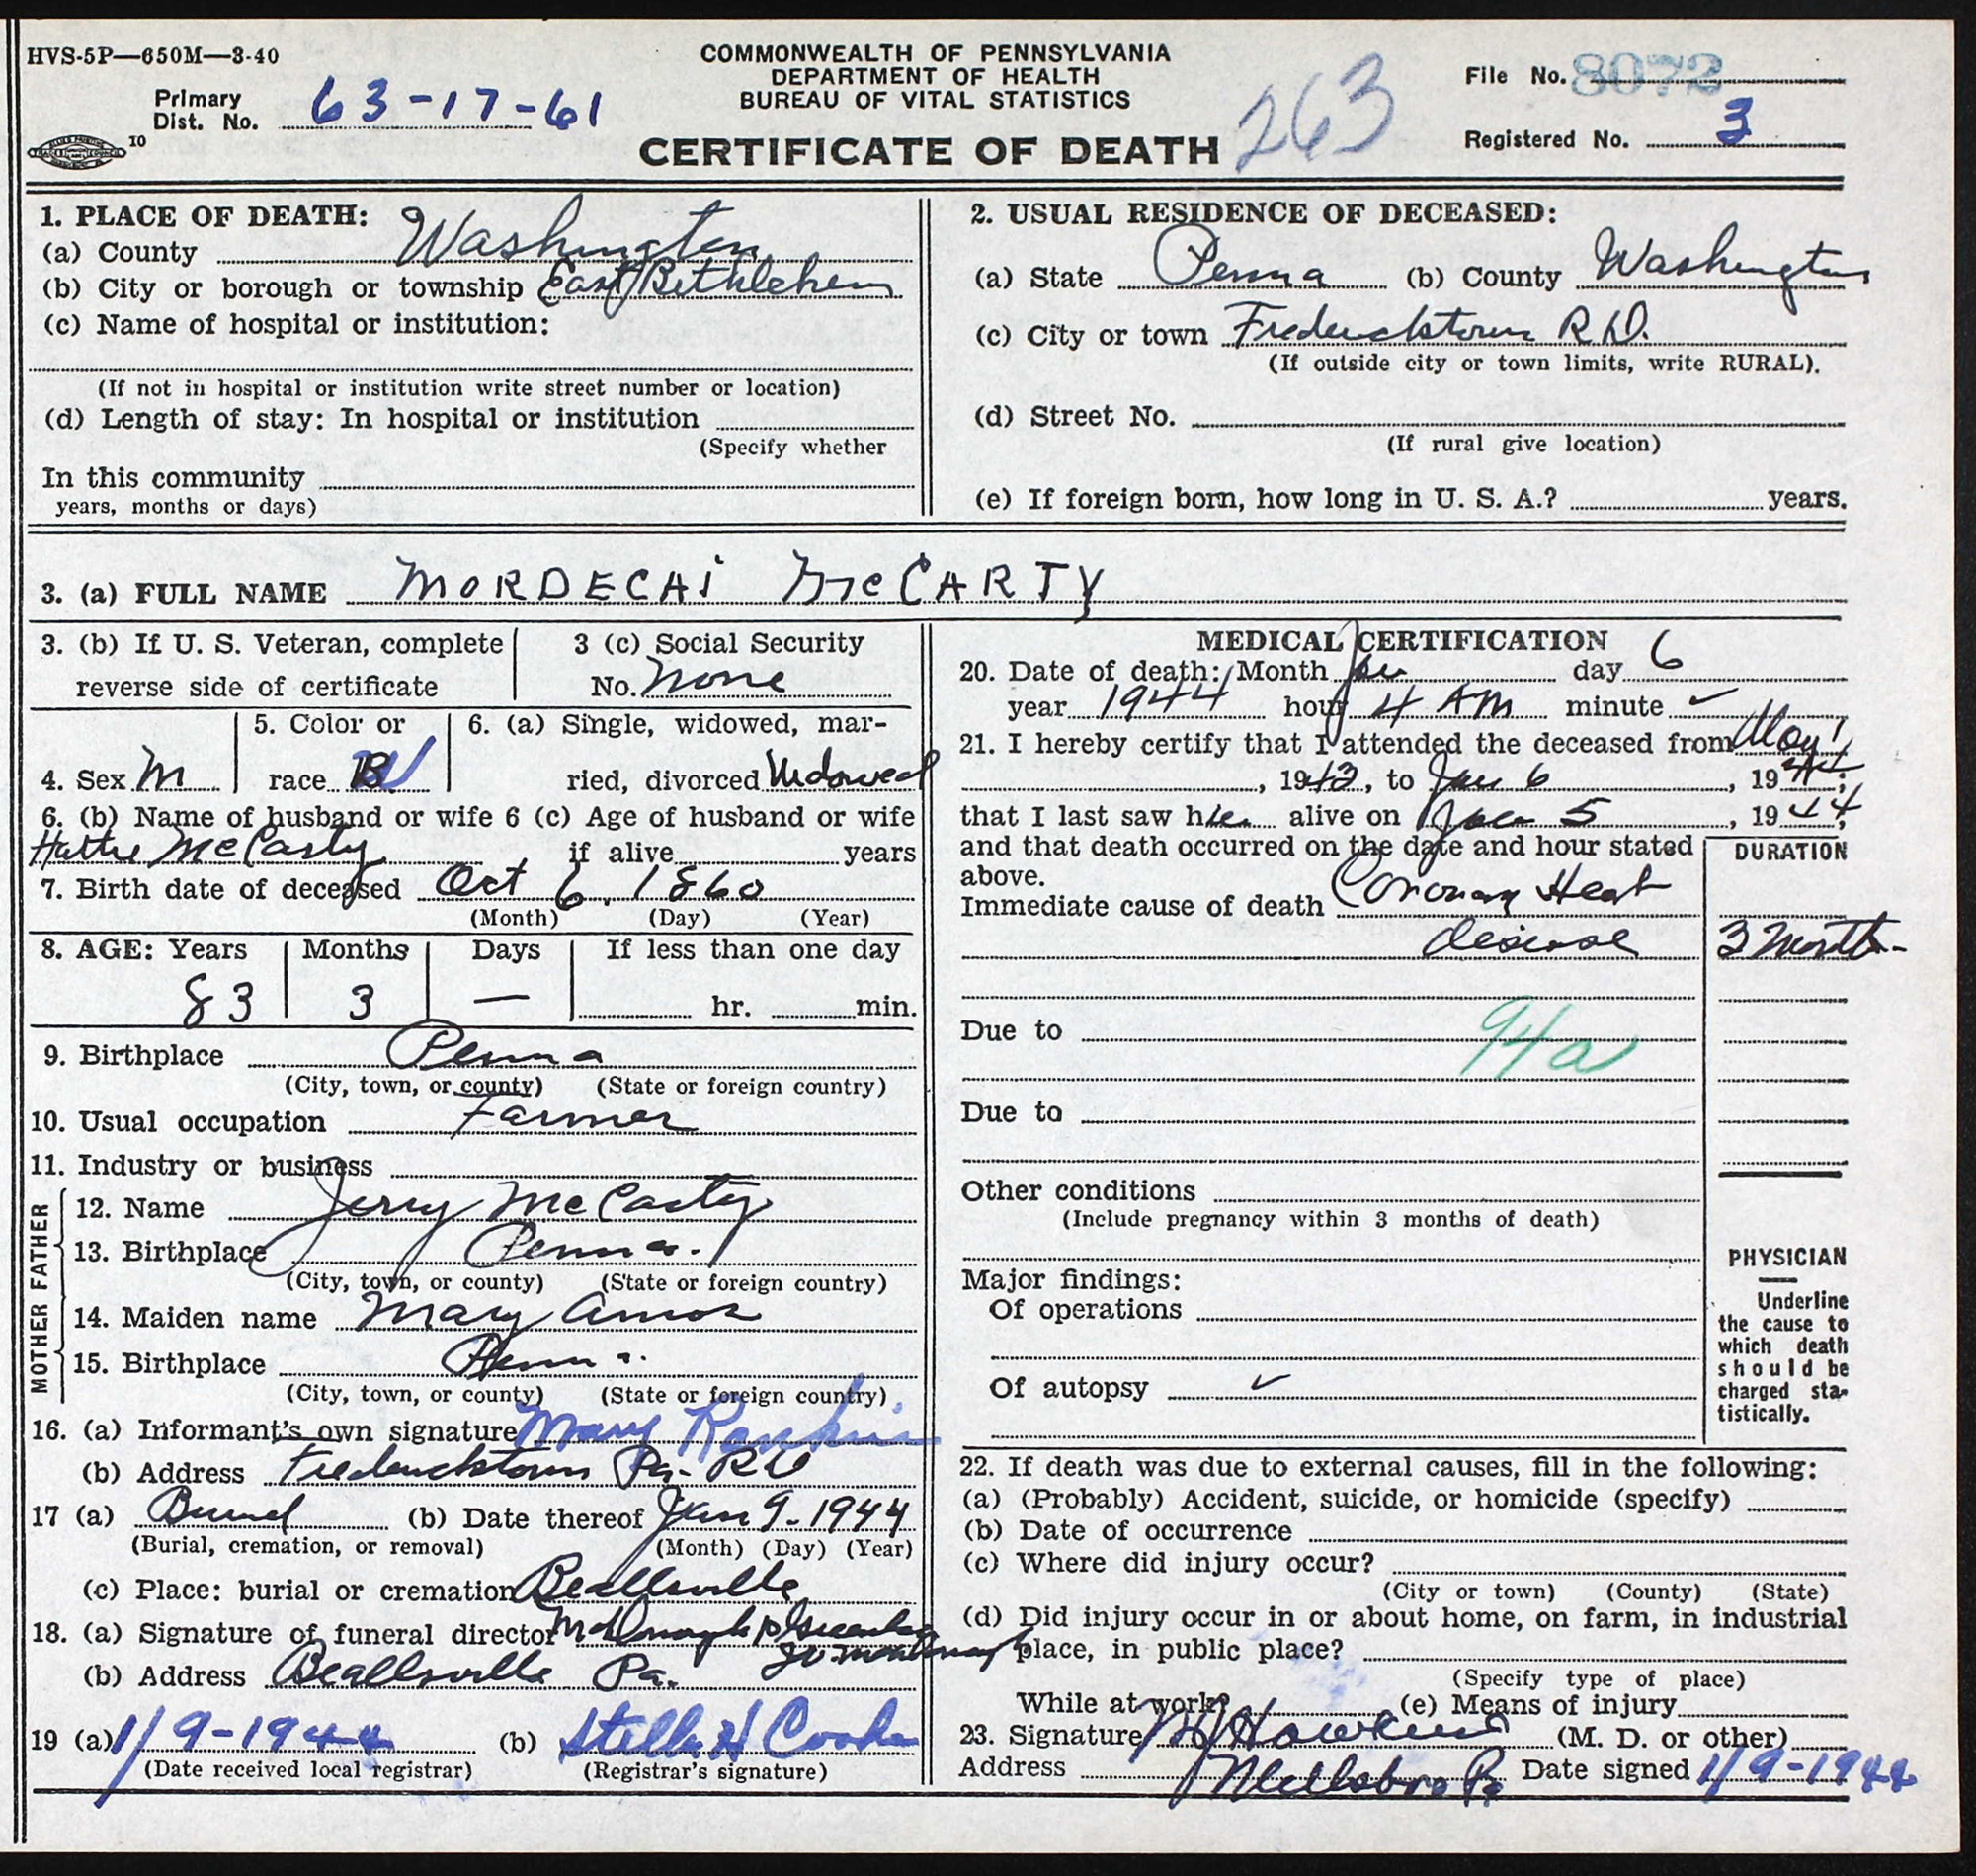 HVS-5P—650M—3-40
COMMONWEALTH OF PENNSYLVANIA
DEPARTMENT OF HEALTH
BUREAU OF VITAL STATISTICS
CERTIFICATE OF DEATH
263
Primary
Dist. No. 63-17-61
10
File No. 8072
Registered No. 3
1. PLACE OF DEATH:
(a) County Washington
(b) City or borough or township East Bethlehem
(c) Name of hospital or institution:
(If not in hospital or institution write street number or location)
(d) Length of stay: In hospital or institution
(Specify whether
In this community
years, months or days)
2. USUAL RESIDENCE OF DECEASED:
(a) State Penna (b) County Washington
(c) City or town Fredericktown R.D.
(If outside city or town limits, write RURAL).
(d) Street No.
(If rural give location)
(e) If foreign born, how long in U. S. A.? years.
3. (a) FULL NAME MORDECAI McCARTY
3. (b) If U. S. Veteran, complete
reverse side of certificate
3 (c) Social Security
No. None
4. Sex M
5. Color or
race B
6. (a) Single, widowed, mar-
ried, divorced Widowed
6. (b) Name of husband or wife 6 (c) Age of husband or wife
Hattie McCarty if alive years
7. Birth date of deceased Oct 6. 1860
(Month) (Day) (Year)
8. AGE: Years Months Days If less than one day
83 3 — hr. min.
9. Birthplace Penna
(City, town, or county) (State or foreign country)
10. Usual occupation Farmer
11. Industry or business
FATHER
12. Name Jerry McCarty
13. Birthplace Penna.
(City, town, or county) (State or foreign country)
MOTHER
14. Maiden name Mary Amos
15. Birthplace Penna.
(City, town, or county) (State or foreign country)
16. (a) Informant's own signature Mary Rankin
(b) Address Fredericktown Pa. RD
17 (a) Burial (b) Date thereof Jan 9-1944
(Burial, cremation, or removal) (Month) (Day) (Year)
(c) Place: burial or cremation Beallsville
18. (a) Signature of funeral director
(b) Address Beallsville Pa.
19 (a) 1/9-1944 (b) Stella H Cooke
(Date received local registrar) (Registrar's signature)
MEDICAL CERTIFICATION
20. Date of death: Month Jan day 6
year 1944 hour 4 AM minute ✓
21. I hereby certify that I attended the deceased from May 1
, 1943, to Jan 6, 1944;
that I last saw him alive on Jan 5, 1944;
and that death occurred on the date and hour stated
above.
DURATION
Immediate cause of death Coronary Heart
disease 3 Months
Due to 94a
Due to
Other conditions
(Include pregnancy within 3 months of death)
Major findings:
Of operations
Of autopsy ✓
PHYSICIAN
Underline
the cause to
which death
should be
charged sta-
tistically.
22. If death was due to external causes, fill in the following:
(a) (Probably) Accident, suicide, or homicide (specify)
(b) Date of occurrence
(c) Where did injury occur?
(City or town) (County) (State)
(d) Did injury occur in or about home, on farm, in industrial
place, in public place?
(Specify type of place)
While at work? (e) Means of injury
23. Signature Hawkins (M. D. or other)
Address Millsboro Pa Date signed 1/9-1944